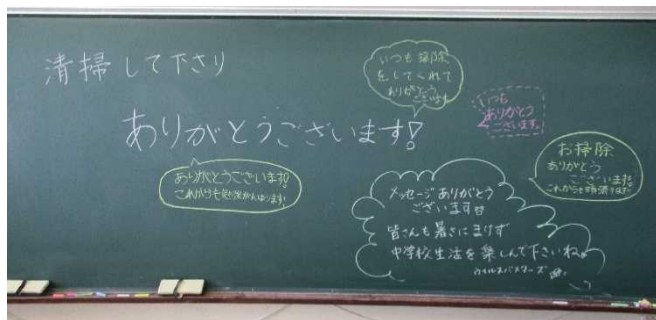 清掃して下さり
ありがとうございます!
いつも掃除
をしてくれて
ありがとう
ございます
いつも
ありがとう
ございます。
ありがとうございます!
これからも勉強がんばります!
お掃除
ありがとう
ございます!
これからも頑張ります
メッセージありがとう
ございます
皆さんも暑さにまけず
中学校生活を楽しんで下さいね。
ウイルスバスターズ